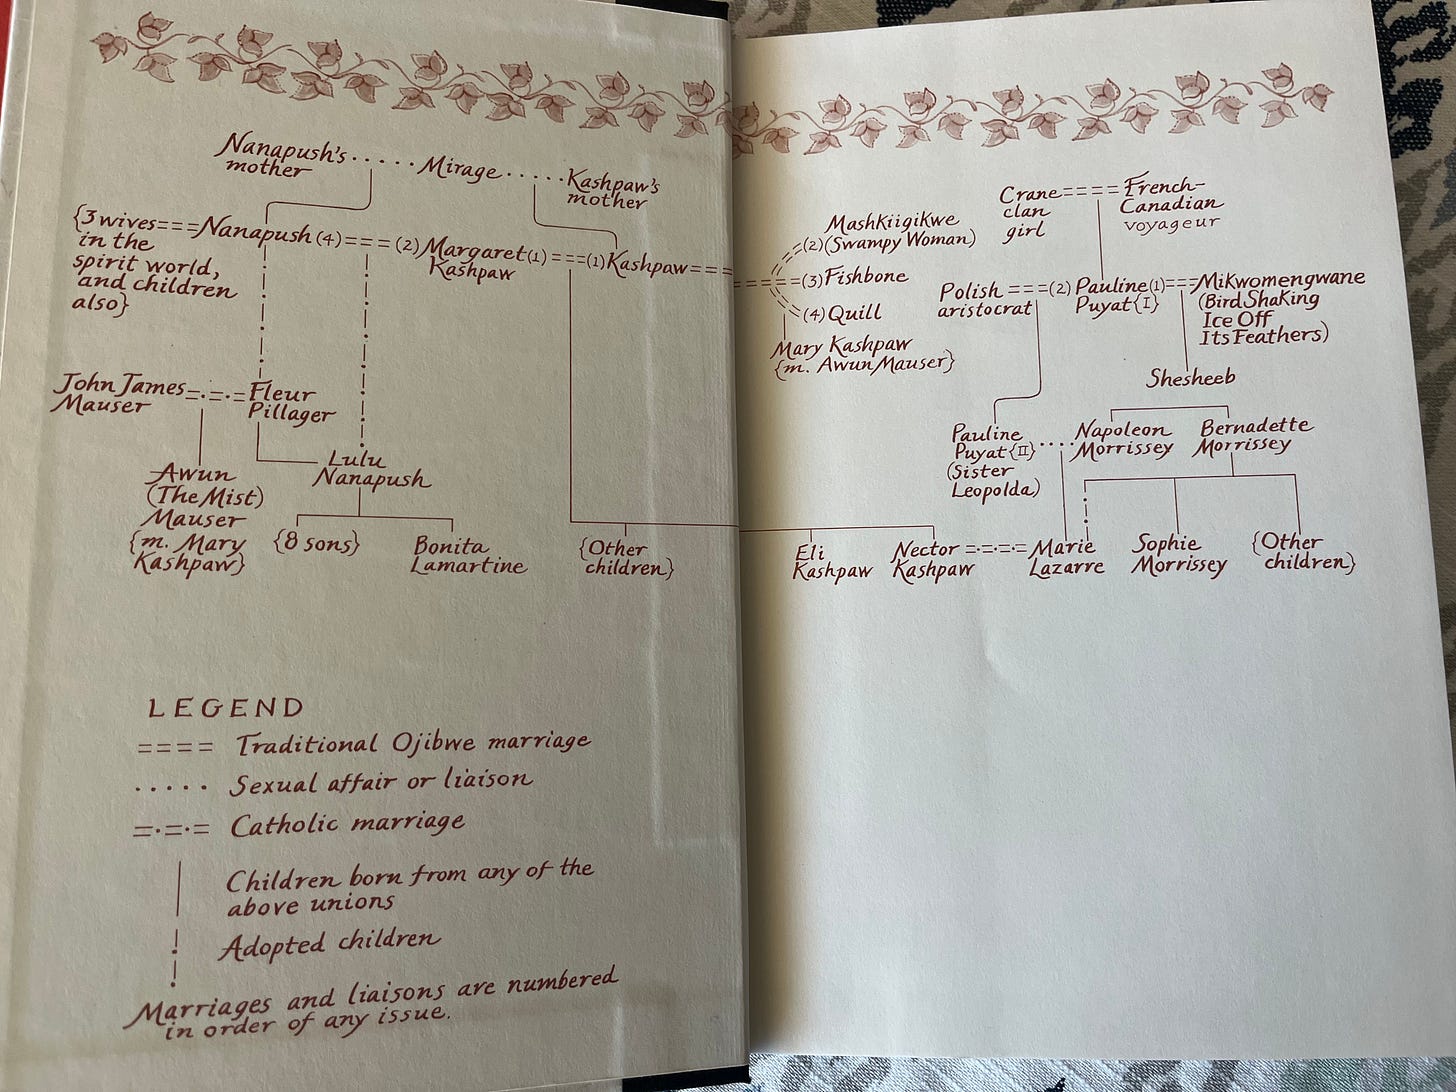 Nanapush's ..... Mirage ..... Kashpaw's
mother
mother
{3 wives===Nanapush(4)===(2)Margaret(1)===(1)Kashpaw===
in the
Kashpaw
spirit world,
and children
also}
John James=.-.=Fleur
Mauser
Pillager
Lulu
Nanapush
Awun
(The Mist)
Mauser
{m. Mary
Kashpaw}
{8 sons}
Bonita
Lamartine
{Other
children}
LEGEND
==== Traditional Ojibwe marriage
..... Sexual affair or liaison
=.=.= Catholic marriage
Children born from any of the
above unions
Adopted children
Marriages and liaisons are numbered
in order of any issue.
Mashkiigikwe
(2)(Swampy Woman)
===(3)Fishbone
(4)Quill
Mary Kashpaw
{m. Awun Mauser}
Crane====French-
clan
Canadian
girl
voyageur
Polish===(2)Pauline(1)===Mikwomengwane
aristocrat
Puyat{I}
(Bird Shaking
Ice Off
Its Feathers)
Shesheeb
Pauline
Puyat{II}....Napoleon
Morrissey
(Sister
Leopolda)
Bernadette
Morrissey
Eli
Kashpaw
Nector=.=.=.=Marie
Kashpaw
Lazarre
Sophie
Morrissey
{Other
children}